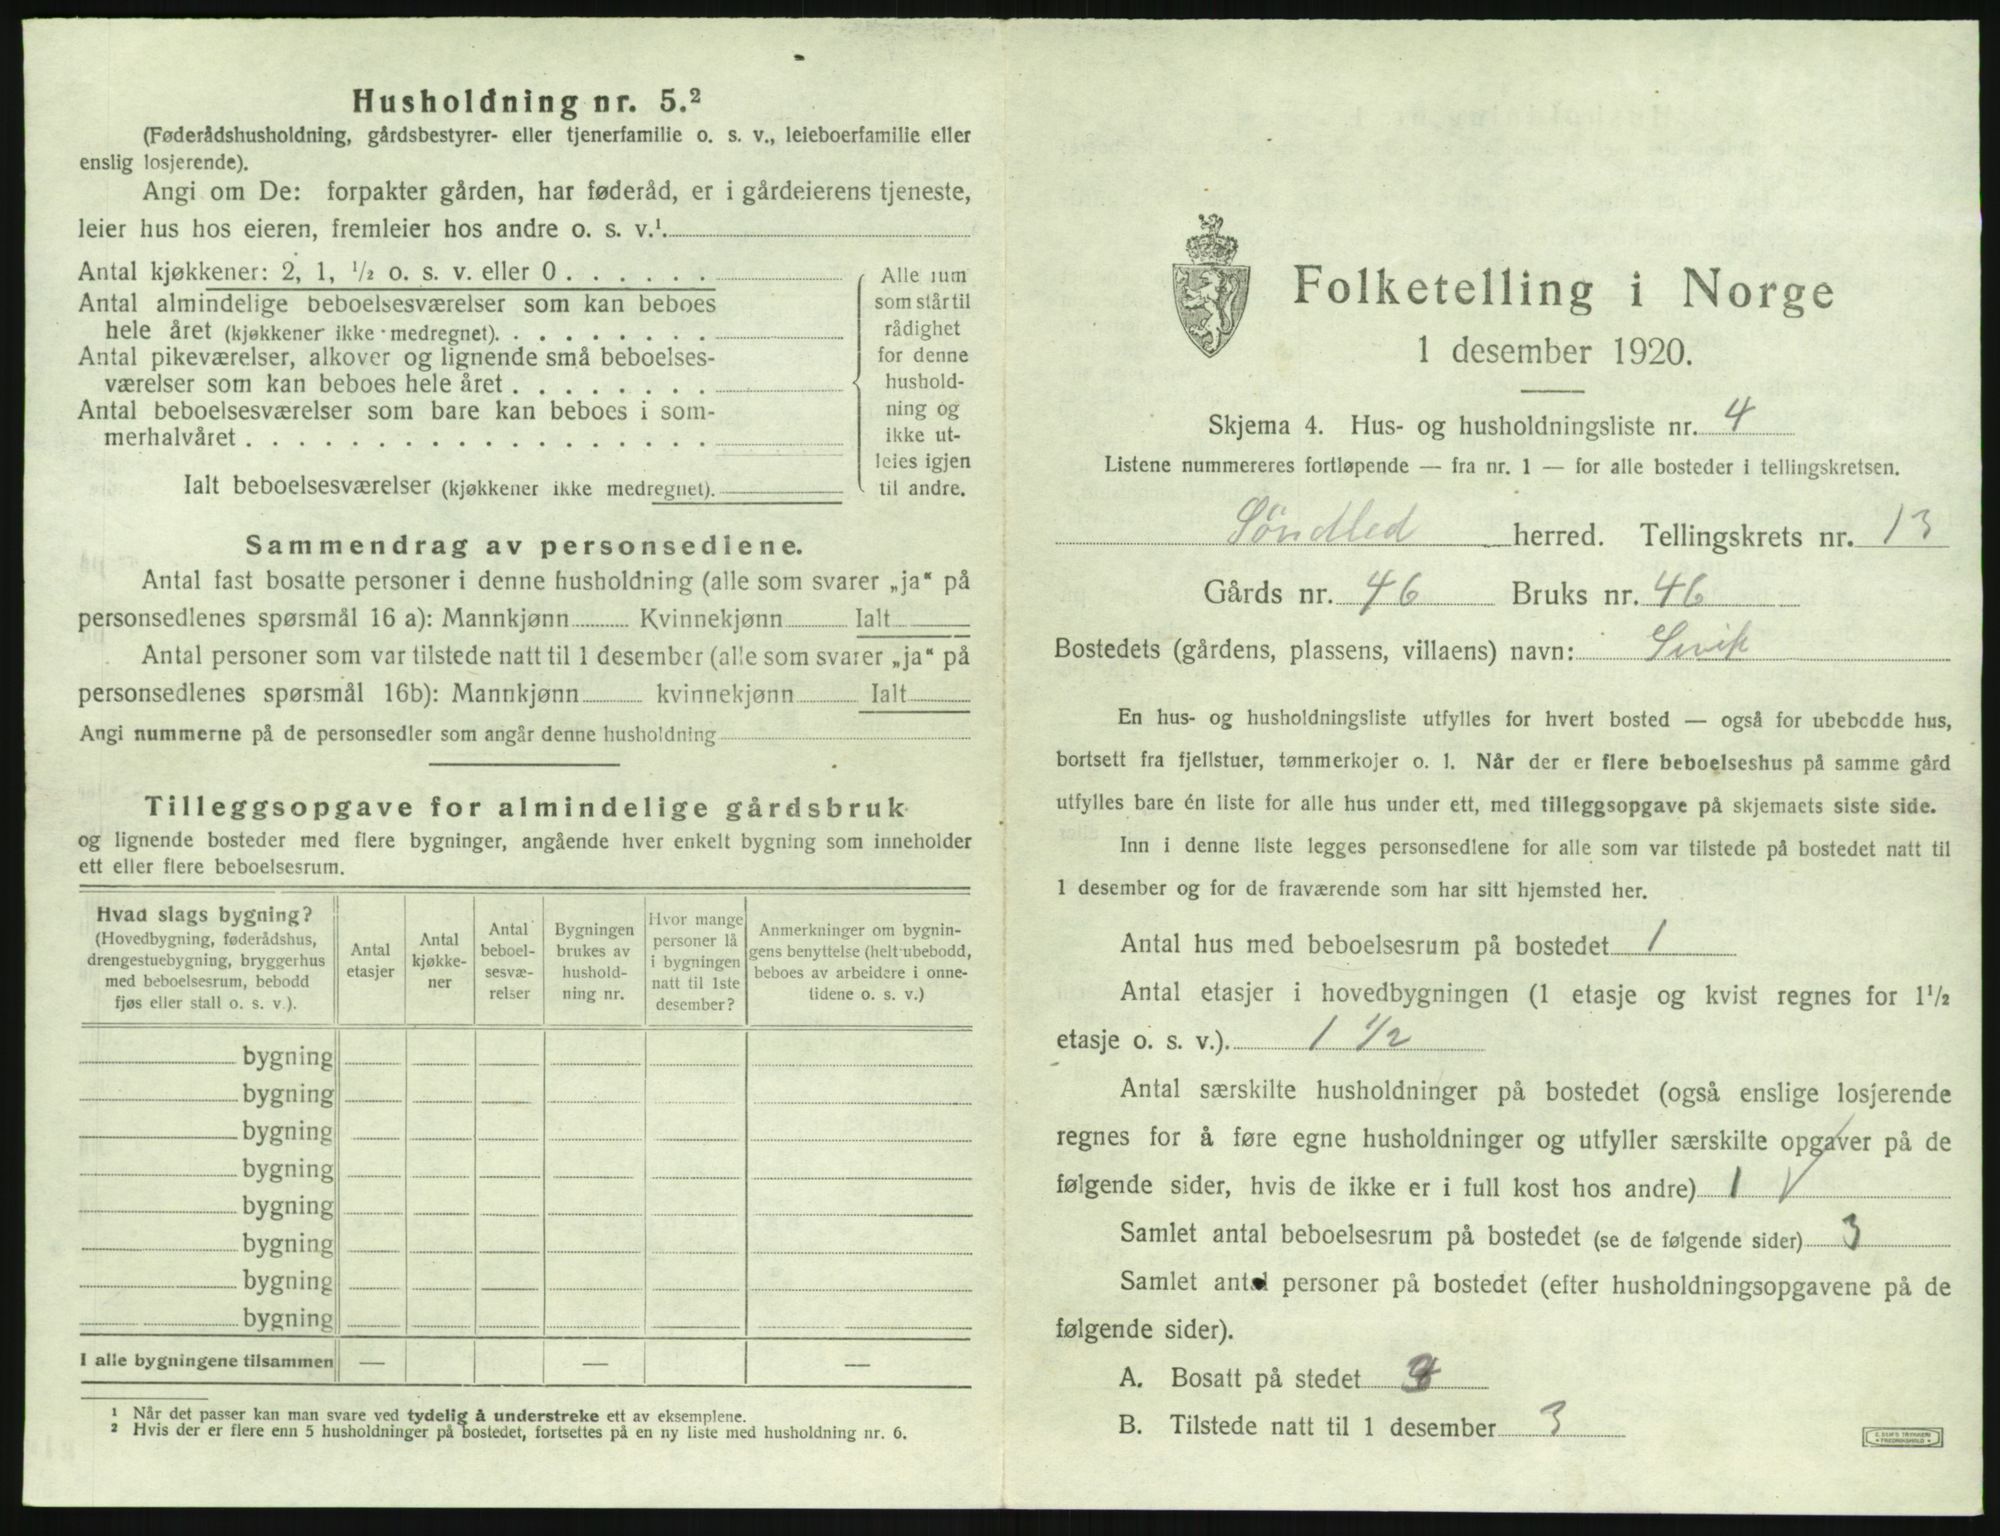 Husholdning nr. 5.²
(Føderådshusholdning, gårdsbestyrer- eller tjenerfamilie o. s. v., leieboerfamilie eller
enslig losjerende).
Angi om De: forpakter gården, har føderåd, er i gårdeierens tjeneste,
leier hus hos eieren, fremleier hos andre o. s. v.¹
Antal kjøkkener: 2, 1, ½ o. s. v. eller 0 . . . . . .
Antal almindelige beboelsesværelser som kan beboes
hele året (kjøkkener ikke medregnet). . . . . . . . .
Antal pikeværelser, alkover og lignende små beboelses-
værelser som kan beboes hele året . . . . . . . .
Antal beboelsesværelser som bare kan beboes i som-
merhalvåret . . . . . . . . . . . . . . . . . .
Ialt beboelsesværelser (kjøkkener ikke medregnet).
Alle rum
som står til
rådighet
for denne
hushold-
ning og
ikke ut-
leies igjen
til andre.
Sammendrag av personsedlene.
Antal fast bosatte personer i denne husholdning (alle som svarer „ja“ på
personsedlenes spørsmål 16 a): Mannkjønn Kvinnekjønn Ialt
Antal personer som var tilstede natt til 1 desember (alle som svarer „ja“ på
personsedlenes spørsmål 16b): Mannkjønn kvinnekjønn Ialt
Angi nummerne på de personsedler som angår denne husholdning
Tilleggsopgave for almindelige gårdsbruk
og lignende bosteder med flere bygninger, angående hver enkelt bygning som inneholder
ett eller flere beboelsesrum.
Hvad slags bygning?
(Hovedbygning, føderådshus,
drengestuebygning, bryggerhus
med beboelsesrum, bebodd
fjøs eller stall o. s. v.).
Antal
etasjer
Antal
kjøkke-
ner
Antal
beboel-
sesvæ-
relser
Bygningen
brukes av
hushold-
ning nr.
Hvor mange
personer lå
i bygningen
natt til 1ste
desember?
Anmerkninger om bygnin-
gens benyttelse (helt ubebodd,
beboes av arbeidere i onne-
tidene o. s. v.)
bygning
bygning
bygning
bygning
bygning
bygning
bygning
bygning
I alle bygningene tilsammen — — —
¹ Når det passer kan man svare ved tydelig å understreke ett av eksemplene.
² Hvis der er flere enn 5 husholdninger på bostedet, fortsettes på en ny liste med husholdning nr. 6.
Folketelling i Norge
1 desember 1920.
Skjema 4. Hus- og husholdningsliste nr. 4
Listene nummereres fortløpende — fra nr. 1 — for alle bosteder i tellingskretsen.
Söndled herred. Tellingskrets nr. 13
Gårds nr. 46 Bruks nr. 46
Bostedets (gårdens, plassens, villaens) navn:
En hus- og husholdningsliste utfylles for hvert bosted — også for ubebodde hus,
bortsett fra fjellstuer, tømmerkojer o. l. Når der er flere beboelseshus på samme gård
utfylles bare én liste for alle hus under ett, med tilleggsopgave på skjemaets siste side.
Inn i denne liste legges personsedlene for alle som var tilstede på bostedet natt til
1 desember og for de fraværende som har sitt hjemsted her.
Antal hus med beboelsesrum på bostedet 1
Antal etasjer i hovedbygningen (1 etasje og kvist regnes for 1½
etasje o. s. v.). 1 ½
Antal særskilte husholdninger på bostedet (også enslige losjerende
regnes for å føre egne husholdninger og utfyller særskilte opgaver på de
følgende sider, hvis de ikke er i full kost hos andre) 1 √
Samlet antal beboelsesrum på bostedet (se de følgende sider) 3
Samlet antal personer på bostedet (efter husholdningsopgavene på de
følgende sider).
A. Bosatt på stedet
B. Tilstede natt til 1 desember 3